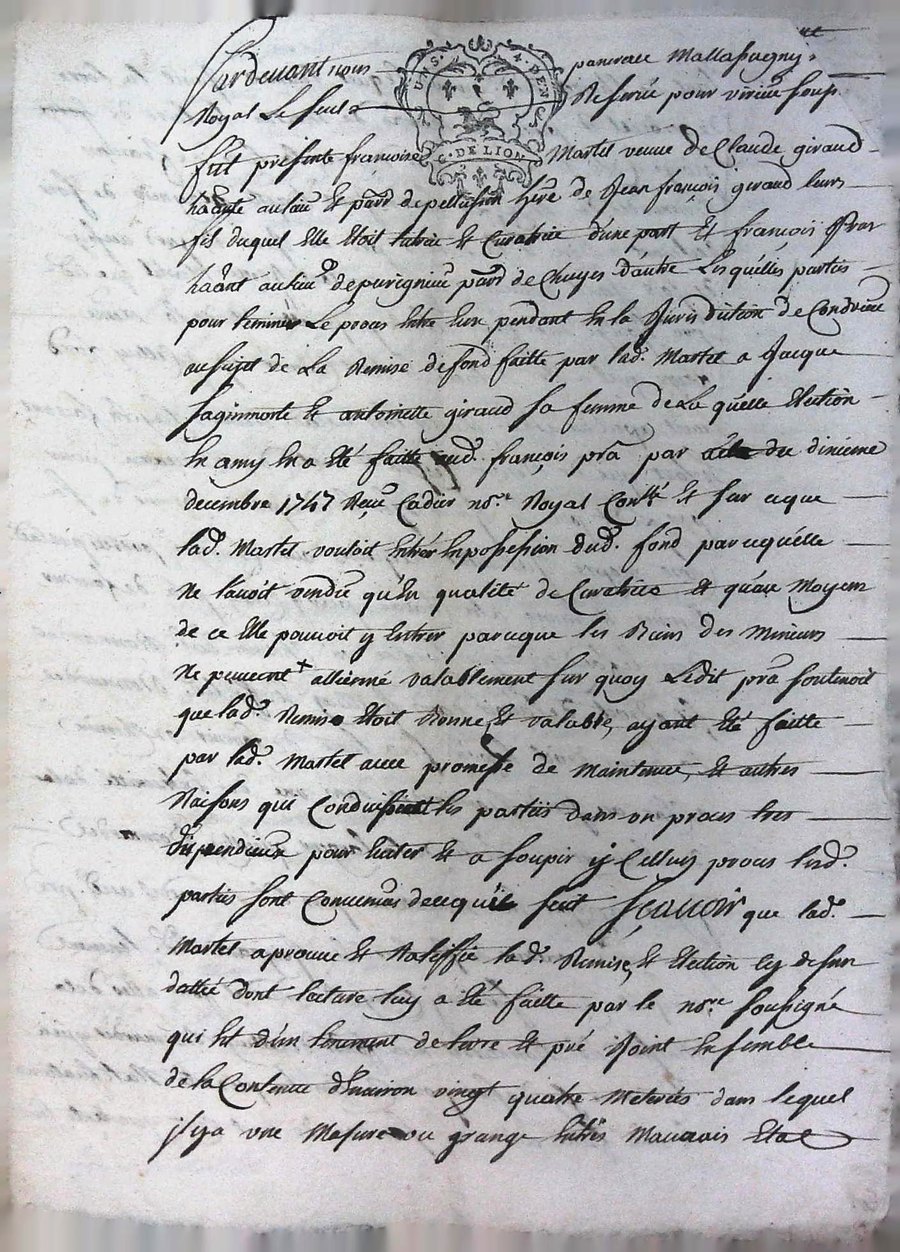 UN S. 4. DEN
G. DE LION
Pardevant nous pancrace Mallassagny
Royal Soussigné pour
fut presente françoise Martel veuve de Claude giraud
hãnte au lieu et parr̃ de pellussin herẽ de Jean françois giraud leurs
fils duquel Elle Etoit tutrice et Curatrice d'une part Et françois
hãant au lieu de parr̃ de Chuyes d'autre Lesquelles parties
pour terminer Le proces Entre Eux pendant En la Jurisdiction de Condrieu
au sujet de La Remise de fond faitte par lad. Martel a Jacque
et antoinette giraud sa femme de La quelle Election
En amy En a Eté faitte aud. françois prã par acte du dixieme
decembre 1747 Reçu Cadier nore. Royal et sur ce que
lad. Martel vouloit Entrer En possession dud. fond parcequ'elle
ne l'avoit vendu qu'En qualité de Curatrice et qu'au Moyen
de ce Elle pouvoit y Entrer parceque les Biens des Mineurs
ne peuvent + allienné valablement sur quoy Ledit prã soutenoit
que lad. Remise Etoit Bonne et valable, ayant Eté faitte
par lad. Martel avec promesse de Maintenue, et autres
Raisons qui Conduisoient les parties dans un proces tres
dispendieux pour Eviter Et assoupir yCelluy proces lesd.
parties sont Convenues de ce qu'il suit Sçavoir que lad.
Martel aprouve et Ratiffie lad. Remise, et Election cy dessus
dattée dont lecture luy a Eté faitte par le nore. soussigné
qui Est d'un tenement de terre et pré Joint Ensemble
de la Contenue d'Environ vingt quatre Meterées dans lequel
il y a une Masure ou grange En tres Mauvais Etat